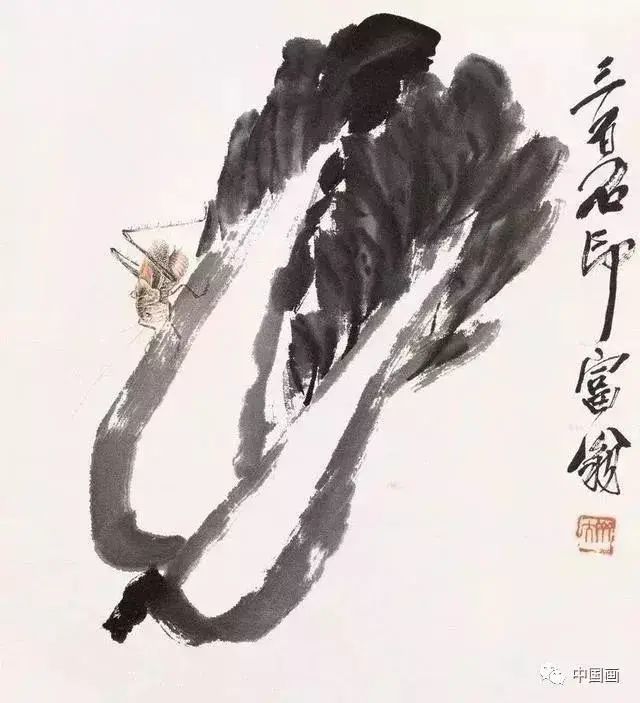 三百石印富翁
中国画